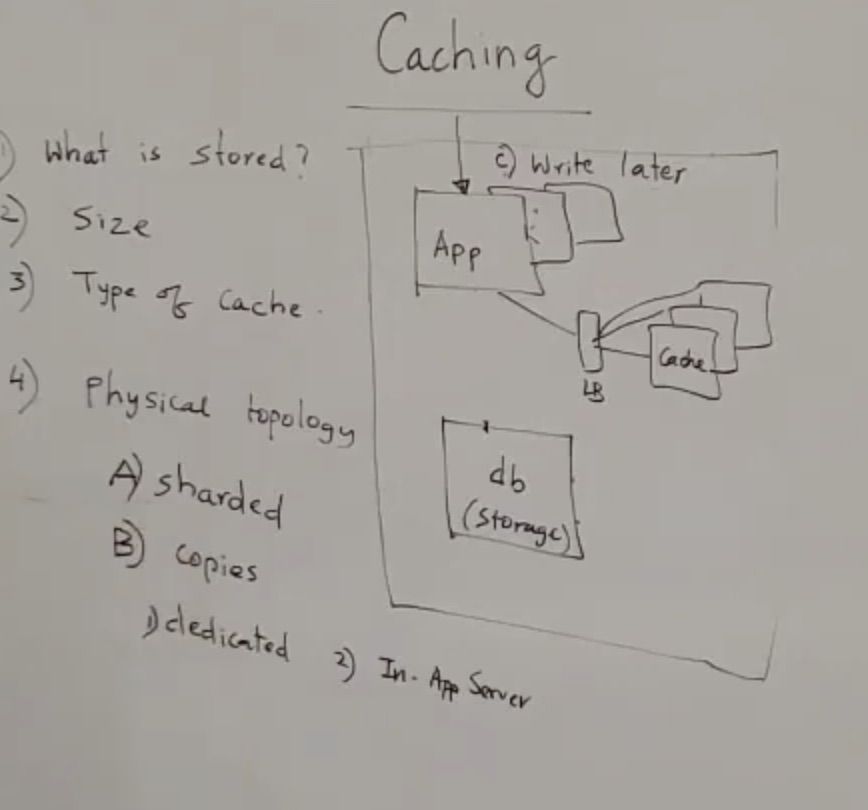 Caching
1) What is stored?
2) Size
3) Type of Cache.
4) Physical topology
A) sharded
B) copies
1) dedicated 2) In-App Server
c) Write later
App
LB
Cache
db
(Storage)